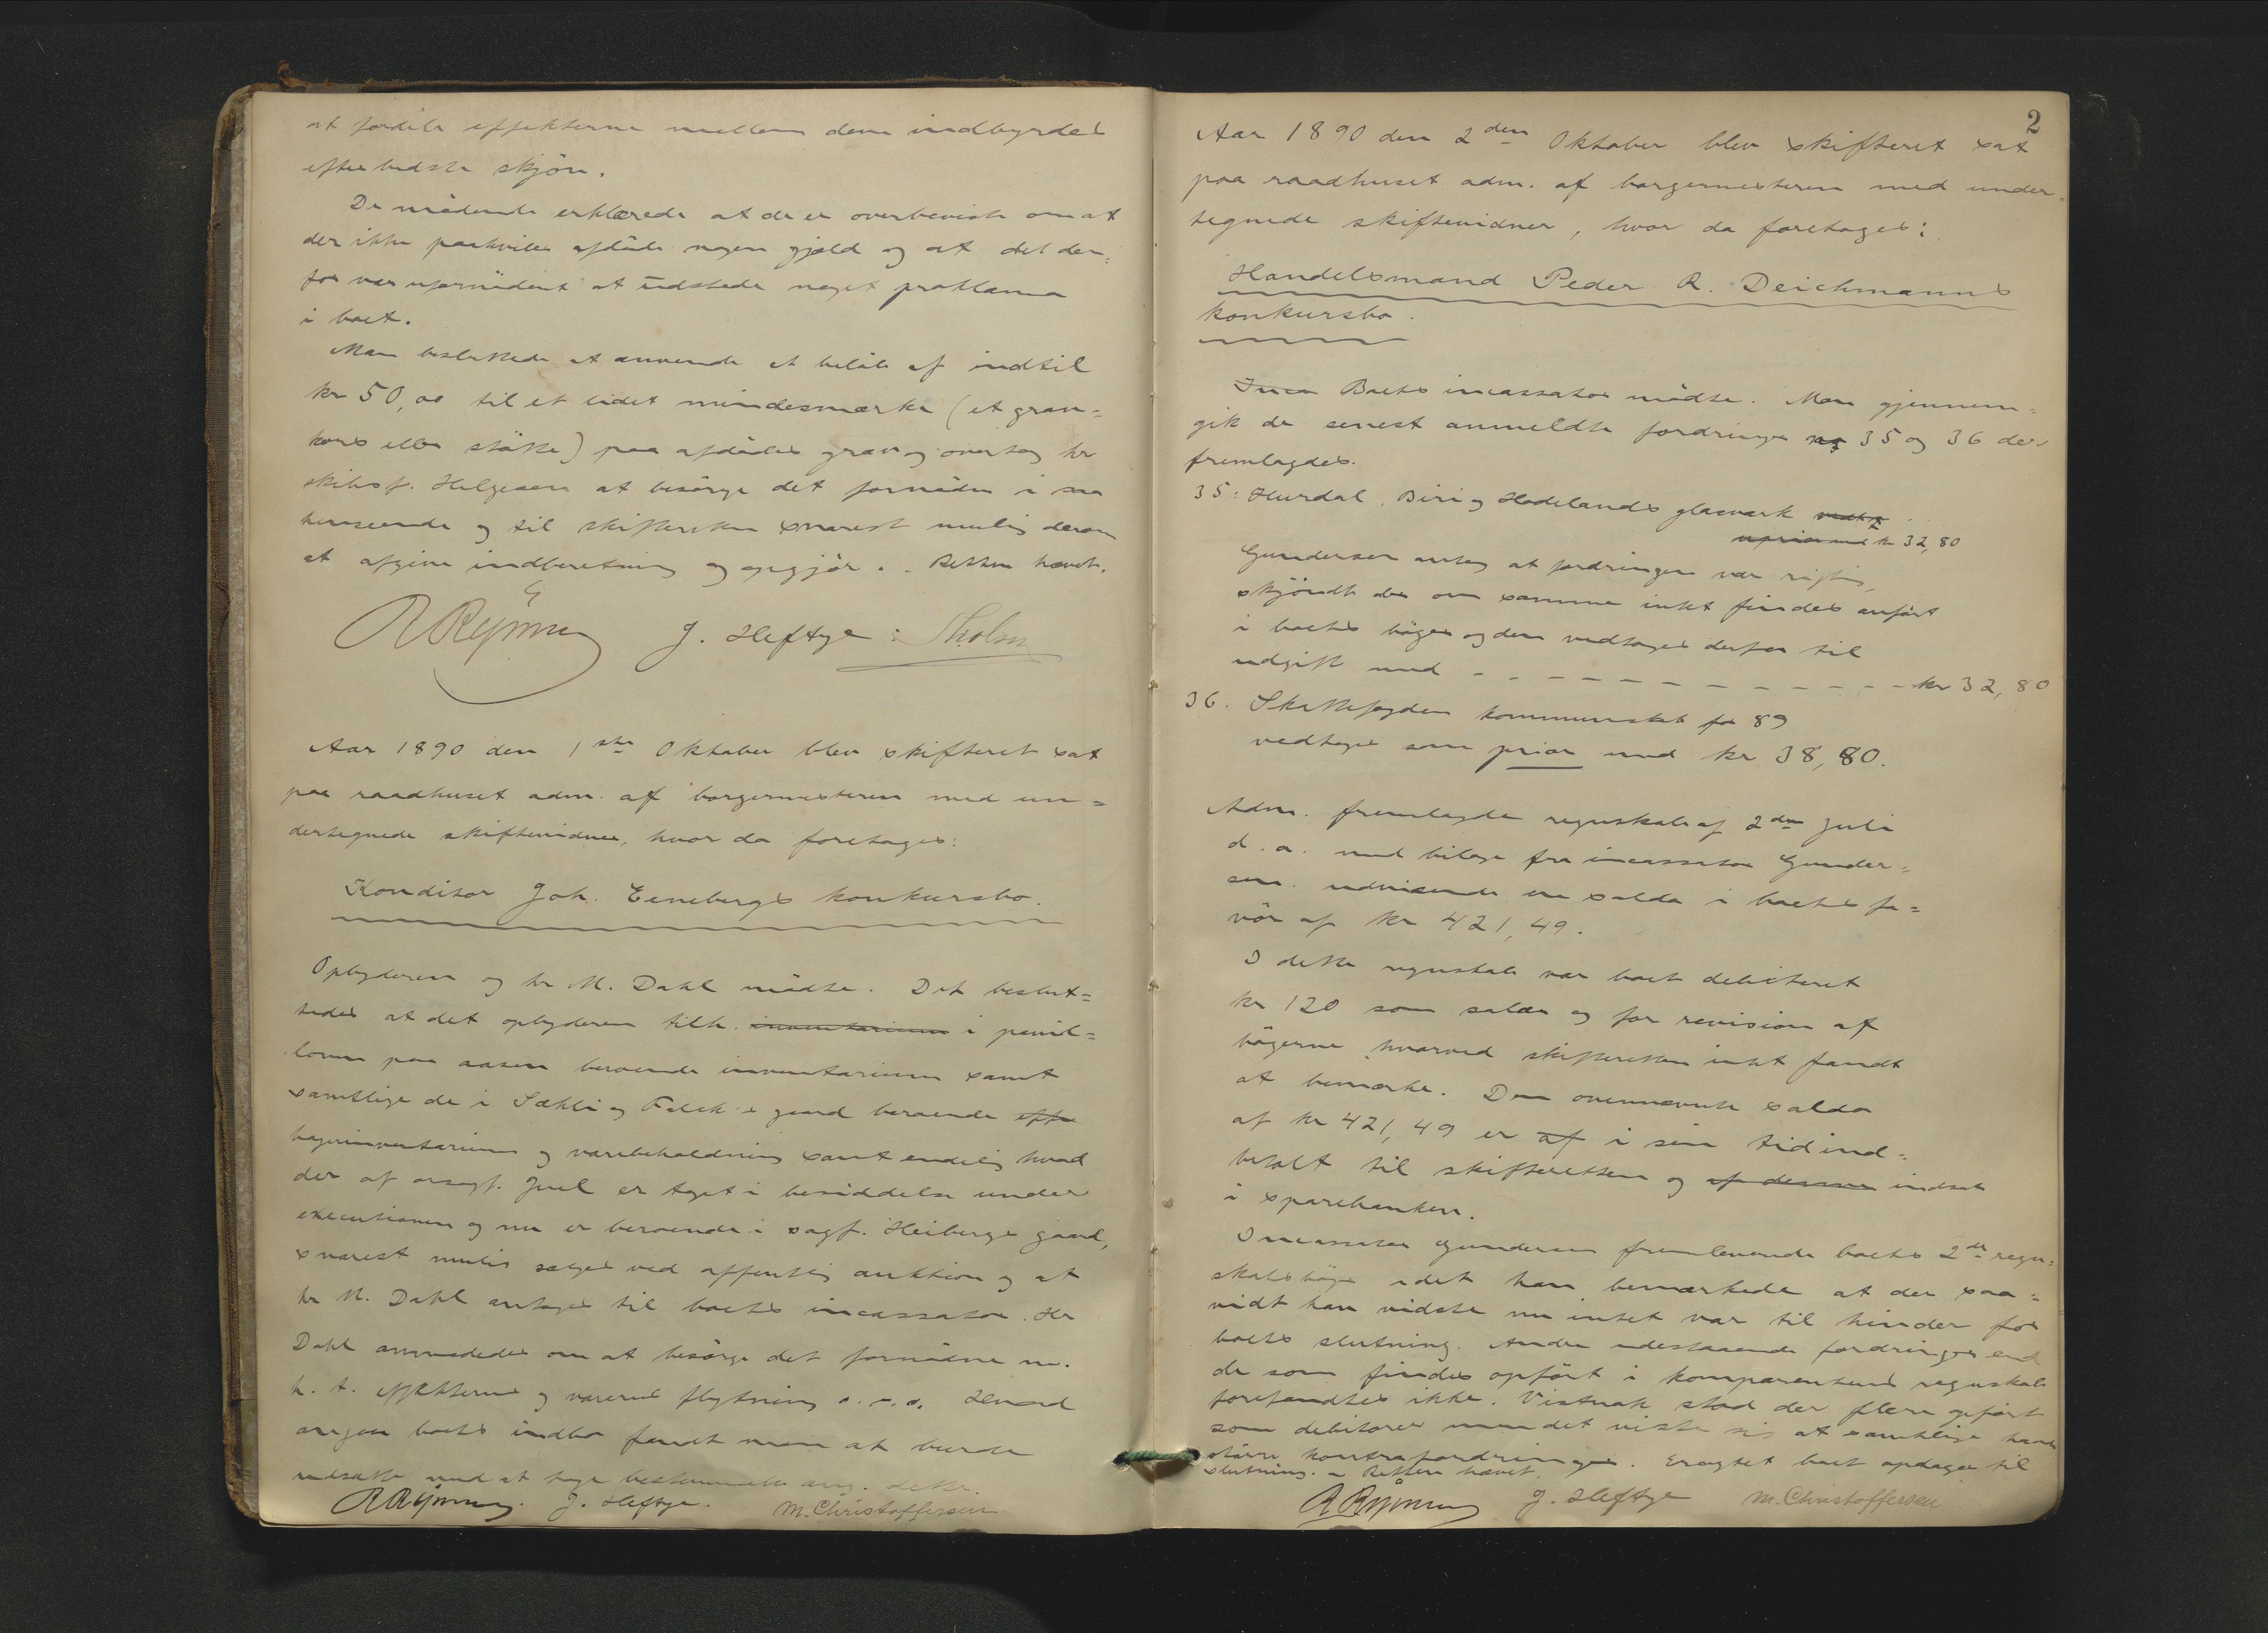 at fordele effekterne mellem dem indbyrdes
efter bedste skjön.
De mödende erklærede at de er overbeviste om at
der ikke paahviler afdöde nogen gjæld og at det der=
for var ufornödent at udstede noget proklama
i boet.
Man besluttede at anvende et belöb af indtil
kr 50,00 til et lidet mindesmærke (et grav=
kors eller stötte) paa afdödes grav og overtog hr
skibsf. Helgesen at besörge det fornödne i saa
henseende og til skifteretten snarest mulig derom
at afgive indberetning og opgjör. - Retten hævet.
R Rynning J. Heftye: Sholm
Aar 1890 den 1ste Oktober blev skifteret sat
paa raadhuset adm. af borgermesteren med un=
dertegnede skiftevidner, hvor da foretoges:
Konditor Joh. Eenebergs konkursbo.
Opbyderen og hr M. Dahl mödte. Det beslut=
tedes at det opbyderen tilh. inventarium i pavil=
lonen paa aasen beroende inventarium samt
samtlige de i Sæhli og Falck's gaard beroende effe
bagerinventarium og varebeholdning samt endelig hvad
der af oragf. Juel er taget i besiddelse under
executionen og nu er beroende i sagf. Heibergs gaard,
snarest mulig sælges ved offentlig auktion og at
hr M. Dahl antages til boets incassator. Hr
Dahl anmodedes om at besörge det fornödne m.
h. t. effekternes og varernes flytning o.s.v. Hvad
angaar boets indbo fandt man at burde
udsætte med at tage bestemmelse ang. dette.
R Rynning. J. Heftye. M. Christoffersen
2
Aar 1890 den 2den Oktober blev skifteret sat
paa raadhuset adm. af borgermesteren med under=
tegnede skiftevidner, hvor da foretoges:
Handelsmand Peder R. Deichmanns
konkursbo.
Inca Boets incassator mödte. Man gjennem=
gik de senest anmeldte fordringer og 35 og 36 der
fremlagdes.
35: Hurdal, Biri og Hadelands glasværk vedt
uprior med kr 32,80
Gundersen antog at fordringen var rigtig,
skjöndt der om samme intet findes anfört
i boets böger og den vedtoges derfor til
udgift med - - - - - - - - - - - - kr 32,80
36. Skattefogden kommuneskat for 89
vedtoges som prior med kr 38,80.
Adm. fremlagde regnskab af 2den Juli
d.a. med bilage fra incassator Gunder=
sen udvisende en saldo i boets fa=
vör af kr 421,49.
I dette regnskab var boet debiteret
kr 120 som salær og for revision af
bögerne hvorved skifteretten intet fandt
at bemærke. Den ovennævnte saldo
af kr 421,49 er af i sin tid ind=
betalt til skifteretten og af denne indsat
i sparebanken.
Incassator Gundersen fremleverede boets 2de regn=
skabsböger idet han bemærkede at der saa=
vidt han vidste nu intet var til hinder for
boets slutning. Andre udestaaende fordringer end
de som findes opfört i komparentens regnskab
forefandtes ikke. Vistnok stod der flere opfört
som debitorer men det viste sig at samtlige havde
större kontrafordringer. Eragtet boet optages til
slutning. - Retten hævet.
R Rynning J. Heftye M. Christoffersen